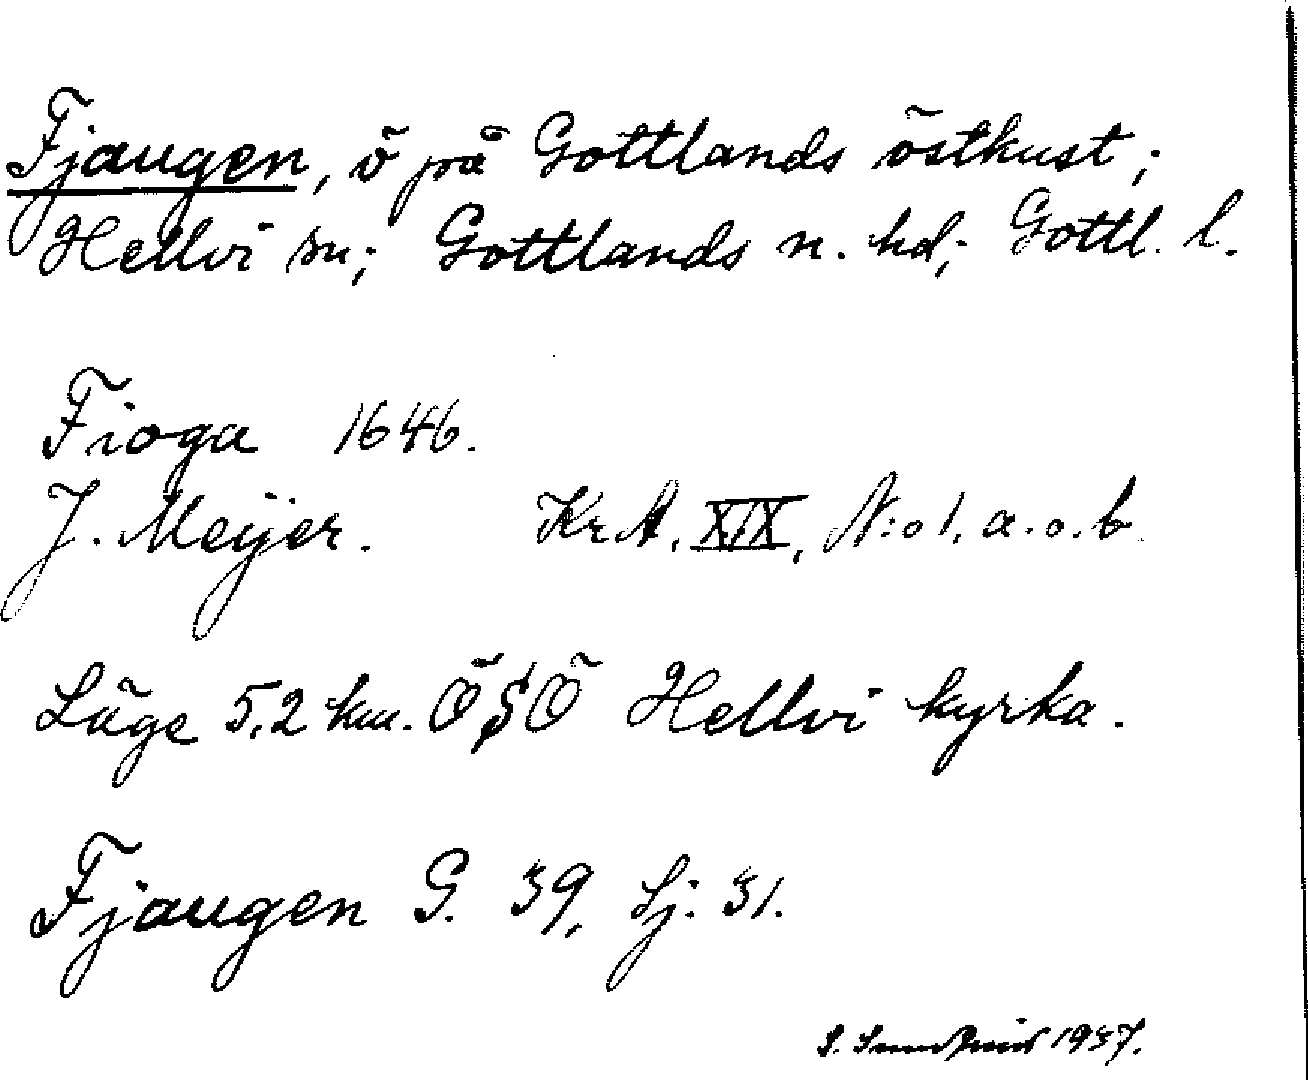 Fjaugen, ö på Gottlands östkust;
Hellvi sn; Gottlands n. hd; Gottl. l.
Fioga 1646.
J. Meijer. Kr A, XIX, N:o 1. a. o. b.
Läge 5,2 km. ÖSÖ Hellvi kyrka.
Fjaugen G. 39, Sj: 31.
S. 1937.